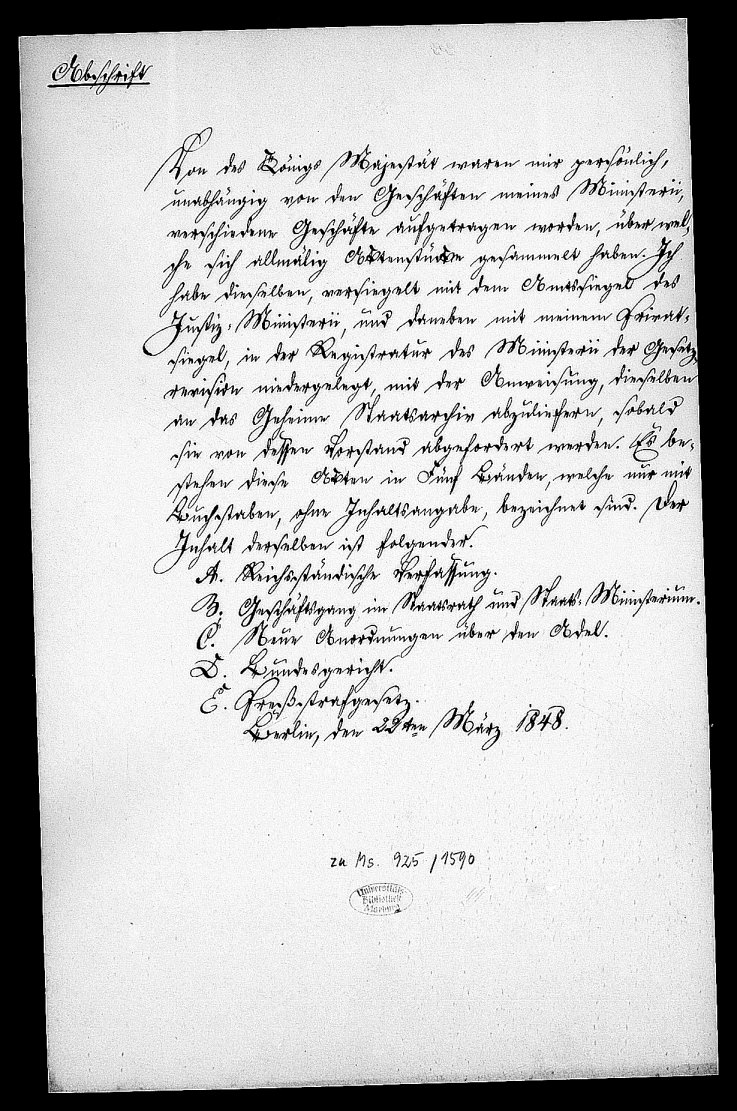 Abschrift
Von des Königs Majestät waren mir persönlich,
unabhängig von den Geschäften meines Ministerii,
verschiedene Geschäfte aufgetragen worden, über wel-
che sich allmälig Aktenstücke gesammelt haben. Ich
habe dieselben, versiegelt mit dem Amtssiegel des
Justiz-Ministerii, und daneben mit meinem Privat-
siegel, in der Registratur des Ministerii der Gesetz-
revision niedergelegt, mit der Anweisung, dieselben
an das Geheime Staatsarchiv abzuliefern, sobald
sie von dessen Vorstand abgefordert werden. Es be-
stehen diese Akten in Fünf Bänden, welche nur mit
Buchstaben, ohne Inhaltsangabe, bezeichnet sind. Der
Inhalt derselben ist folgender.
A. Reichsständische Verfassung.
B. Geschäftsgang im Staatsrath und Staats-Ministerium.
C. Neue Anordnungen über den Adel.
D. Bundesgericht.
E. Preßstrafgesetz.
Berlin, den 22ten März 1848.
zu Ms. 925/1590
Universitäts
Bibliothek
Marburg